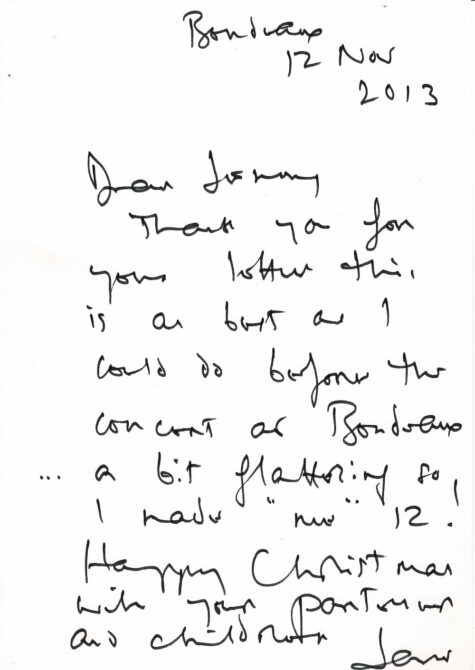 Bordeaux
12 Nov
2013
Dear Jeremy
Thank you for
your letter this
is as best as I
could do before the
concert at Bordeaux
... a bit flattering so
I made "me" 12!
Happy Christmas
with your
and children